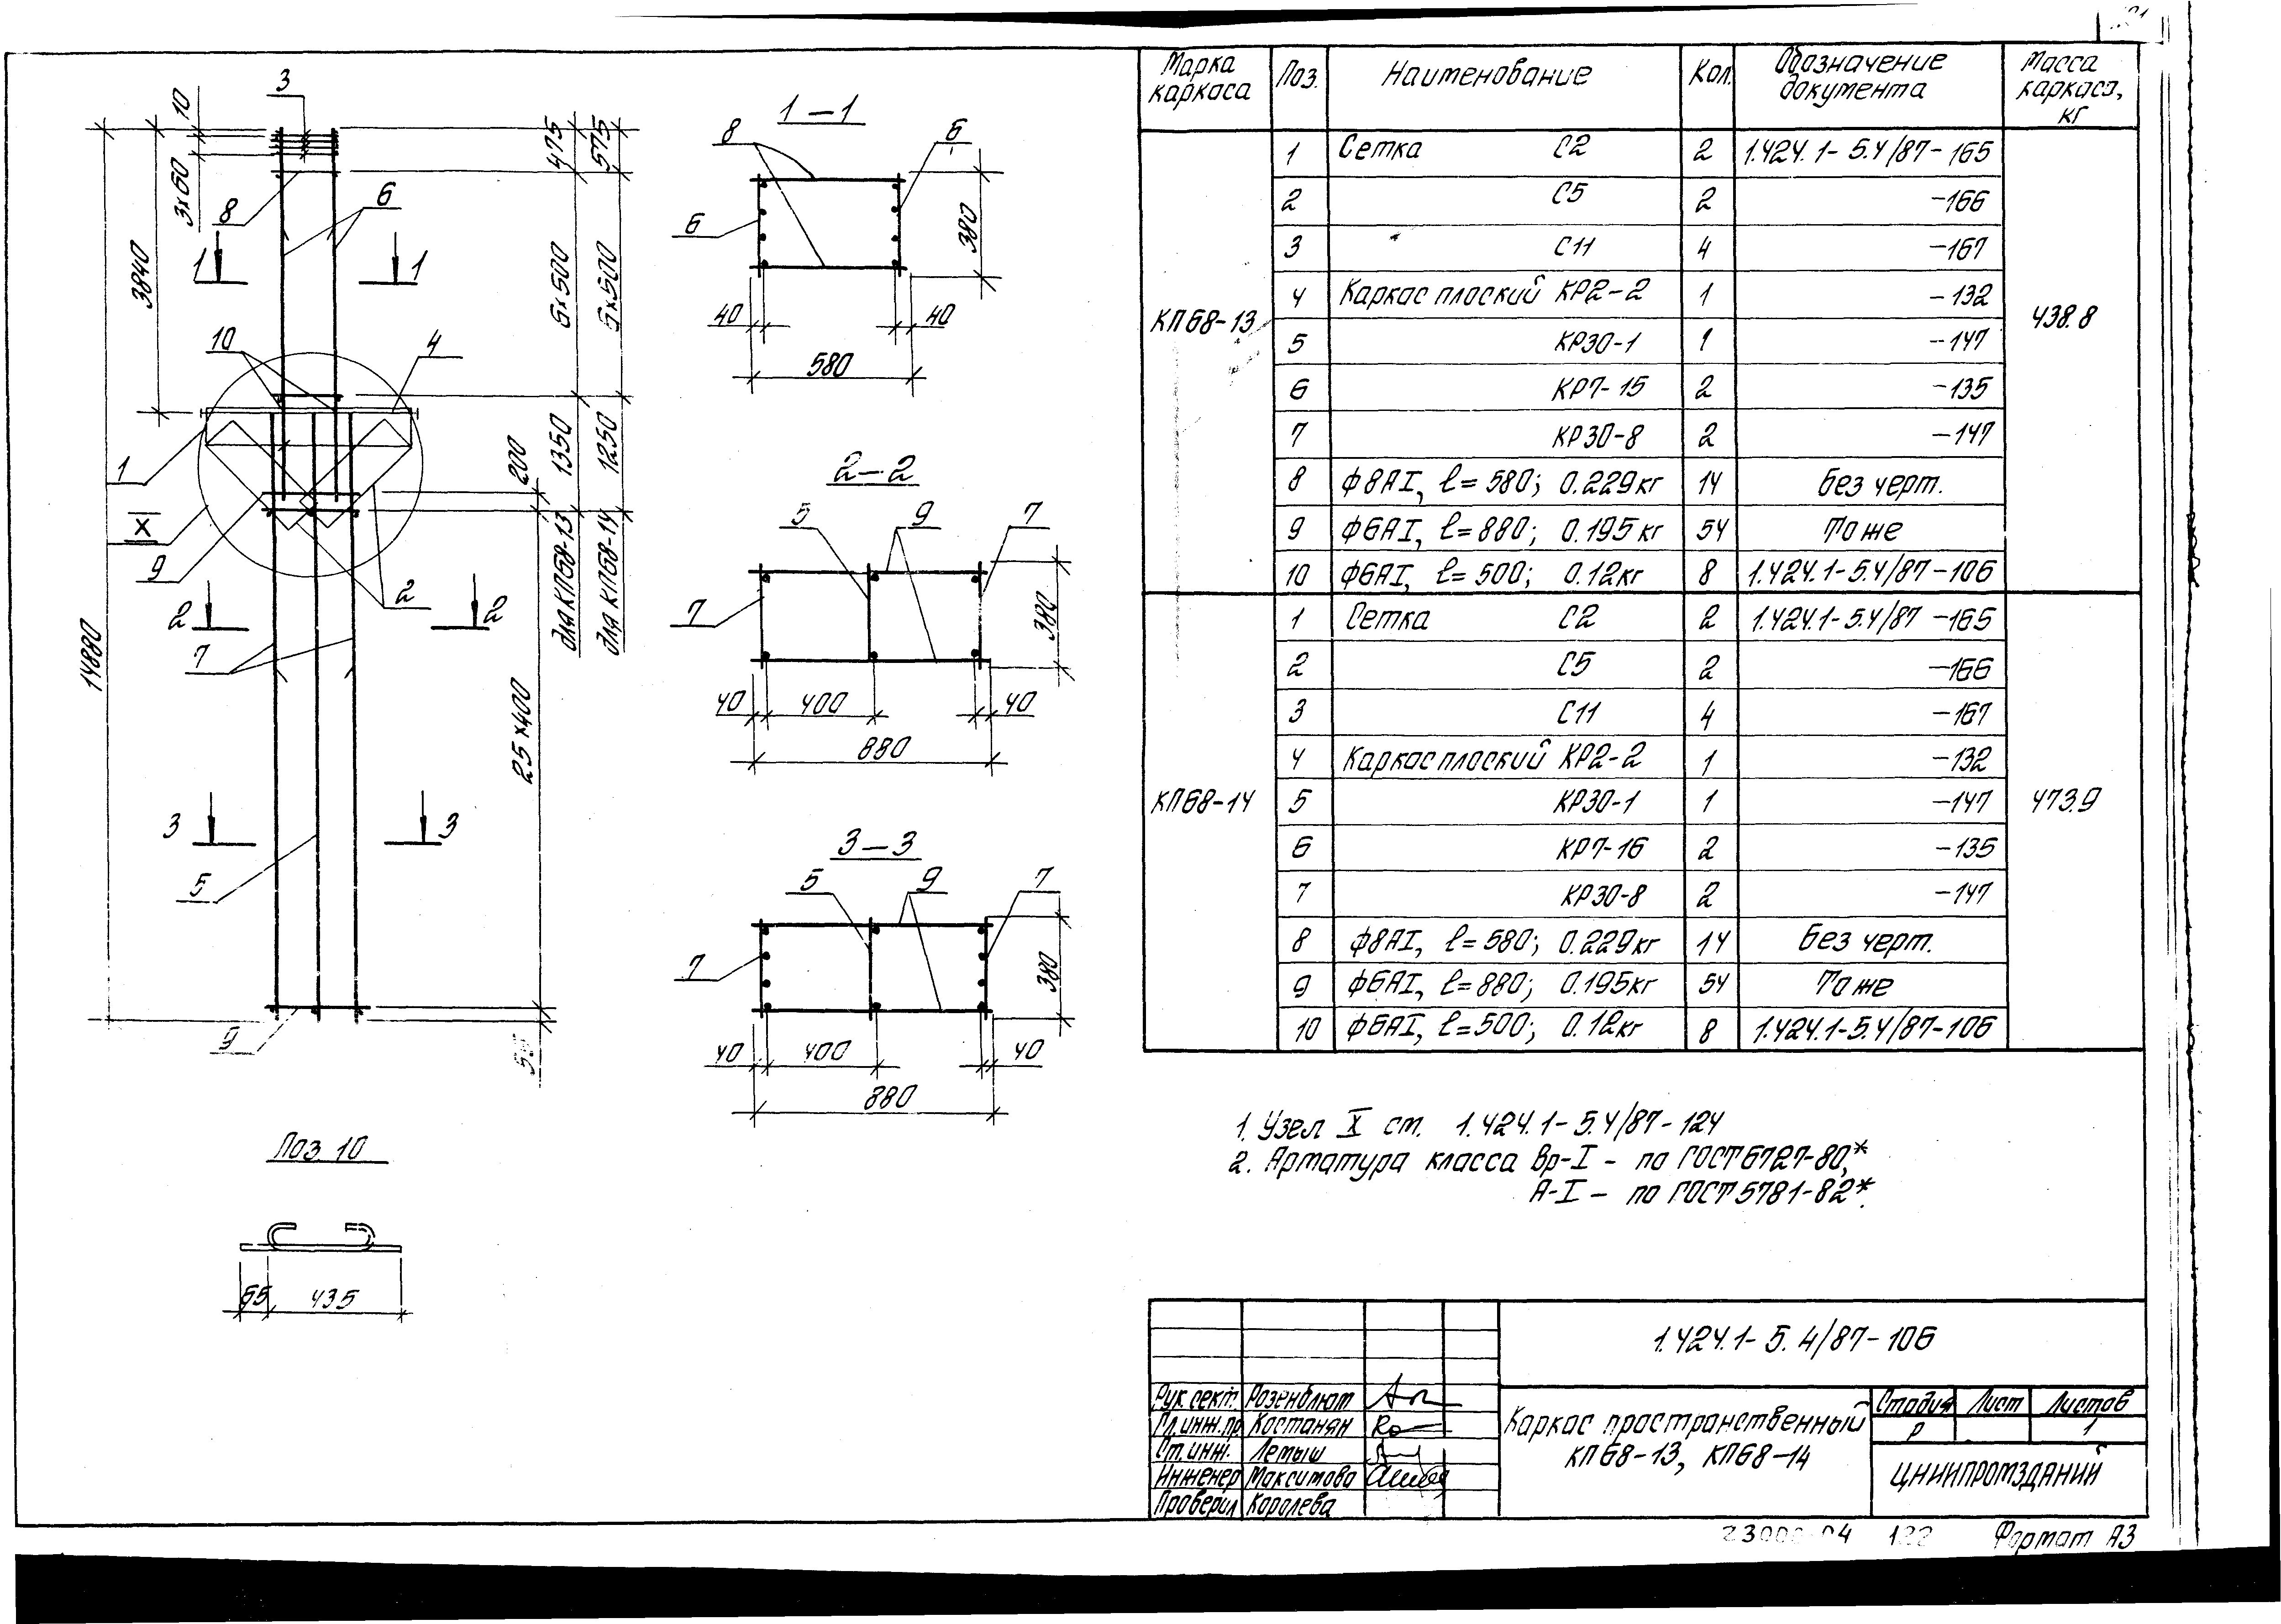 Марка каркаса | Поз. | Наименование | Кол. | Обозначение документа | Масса каркаса, кг
КП68-13 | 438.8
1 | Сетка С2 | 2 | 1.424.1-5.4/87-165
2 | С5 | 2 | -166
3 | С11 | 4 | -167
4 | Каркас плоский КР2-2 | 1 | -132
5 | КР30-1 | 1 | -147
6 | КР7-15 | 2 | -135
7 | КР30-8 | 2 | -147
8 | ф8АI, l=580; 0.229кг | 14 | Без черт.
9 | ф6АI, l=880; 0.195кг | 54 | То же
10 | ф6АI, l=500; 0.12кг | 8 | 1.424.1-5.4/87-106
КП68-14 | 473.9
1 | Сетка С2 | 2 | 1.424.1-5.4/87-165
2 | С5 | 2 | -166
3 | С11 | 4 | -167
4 | Каркас плоский КР2-2 | 1 | -132
5 | КР30-1 | 1 | -147
6 | КР7-16 | 2 | -135
7 | КР30-8 | 2 | -147
8 | ф8АI, l=580; 0.229кг | 14 | Без черт.
9 | ф6АI, l=880; 0.195кг | 54 | То же
10 | ф6АI, l=500; 0.12кг | 8 | 1.424.1-5.4/87-106
3
10
3х60
3840
14880
8
6
1 1
10
4
1
X
9
2
2 2
7
3 3
5
9
200
25х400
475
575
1350
1250
для КП68-13
для КП68-14
1-1
8 6
6
380
40 40
580
2-2
5 9 7
7
380
40 400 40
880
3-3
5 9 7
7
380
40 400 40
880
Поз. 10
65 435
1. Узел X ст. 1.424.1-5.4/87-124
2. Арматура класса Вр-I - по ГОСТ 6727-80,*
А-I - по ГОСТ 5781-82*.
1.424.1-5.4/87-106
Рук. сект. Розенблют
Гл. инж. пр Костанян
Ст. инж. Лемыш
Инженер Максимова
Проверил Королева
Каркас пространственный
КП68-13, КП68-14
Стадия Лист Листов
Р 1
ЦНИИПРОМЗДАНИЙ
Формат А3